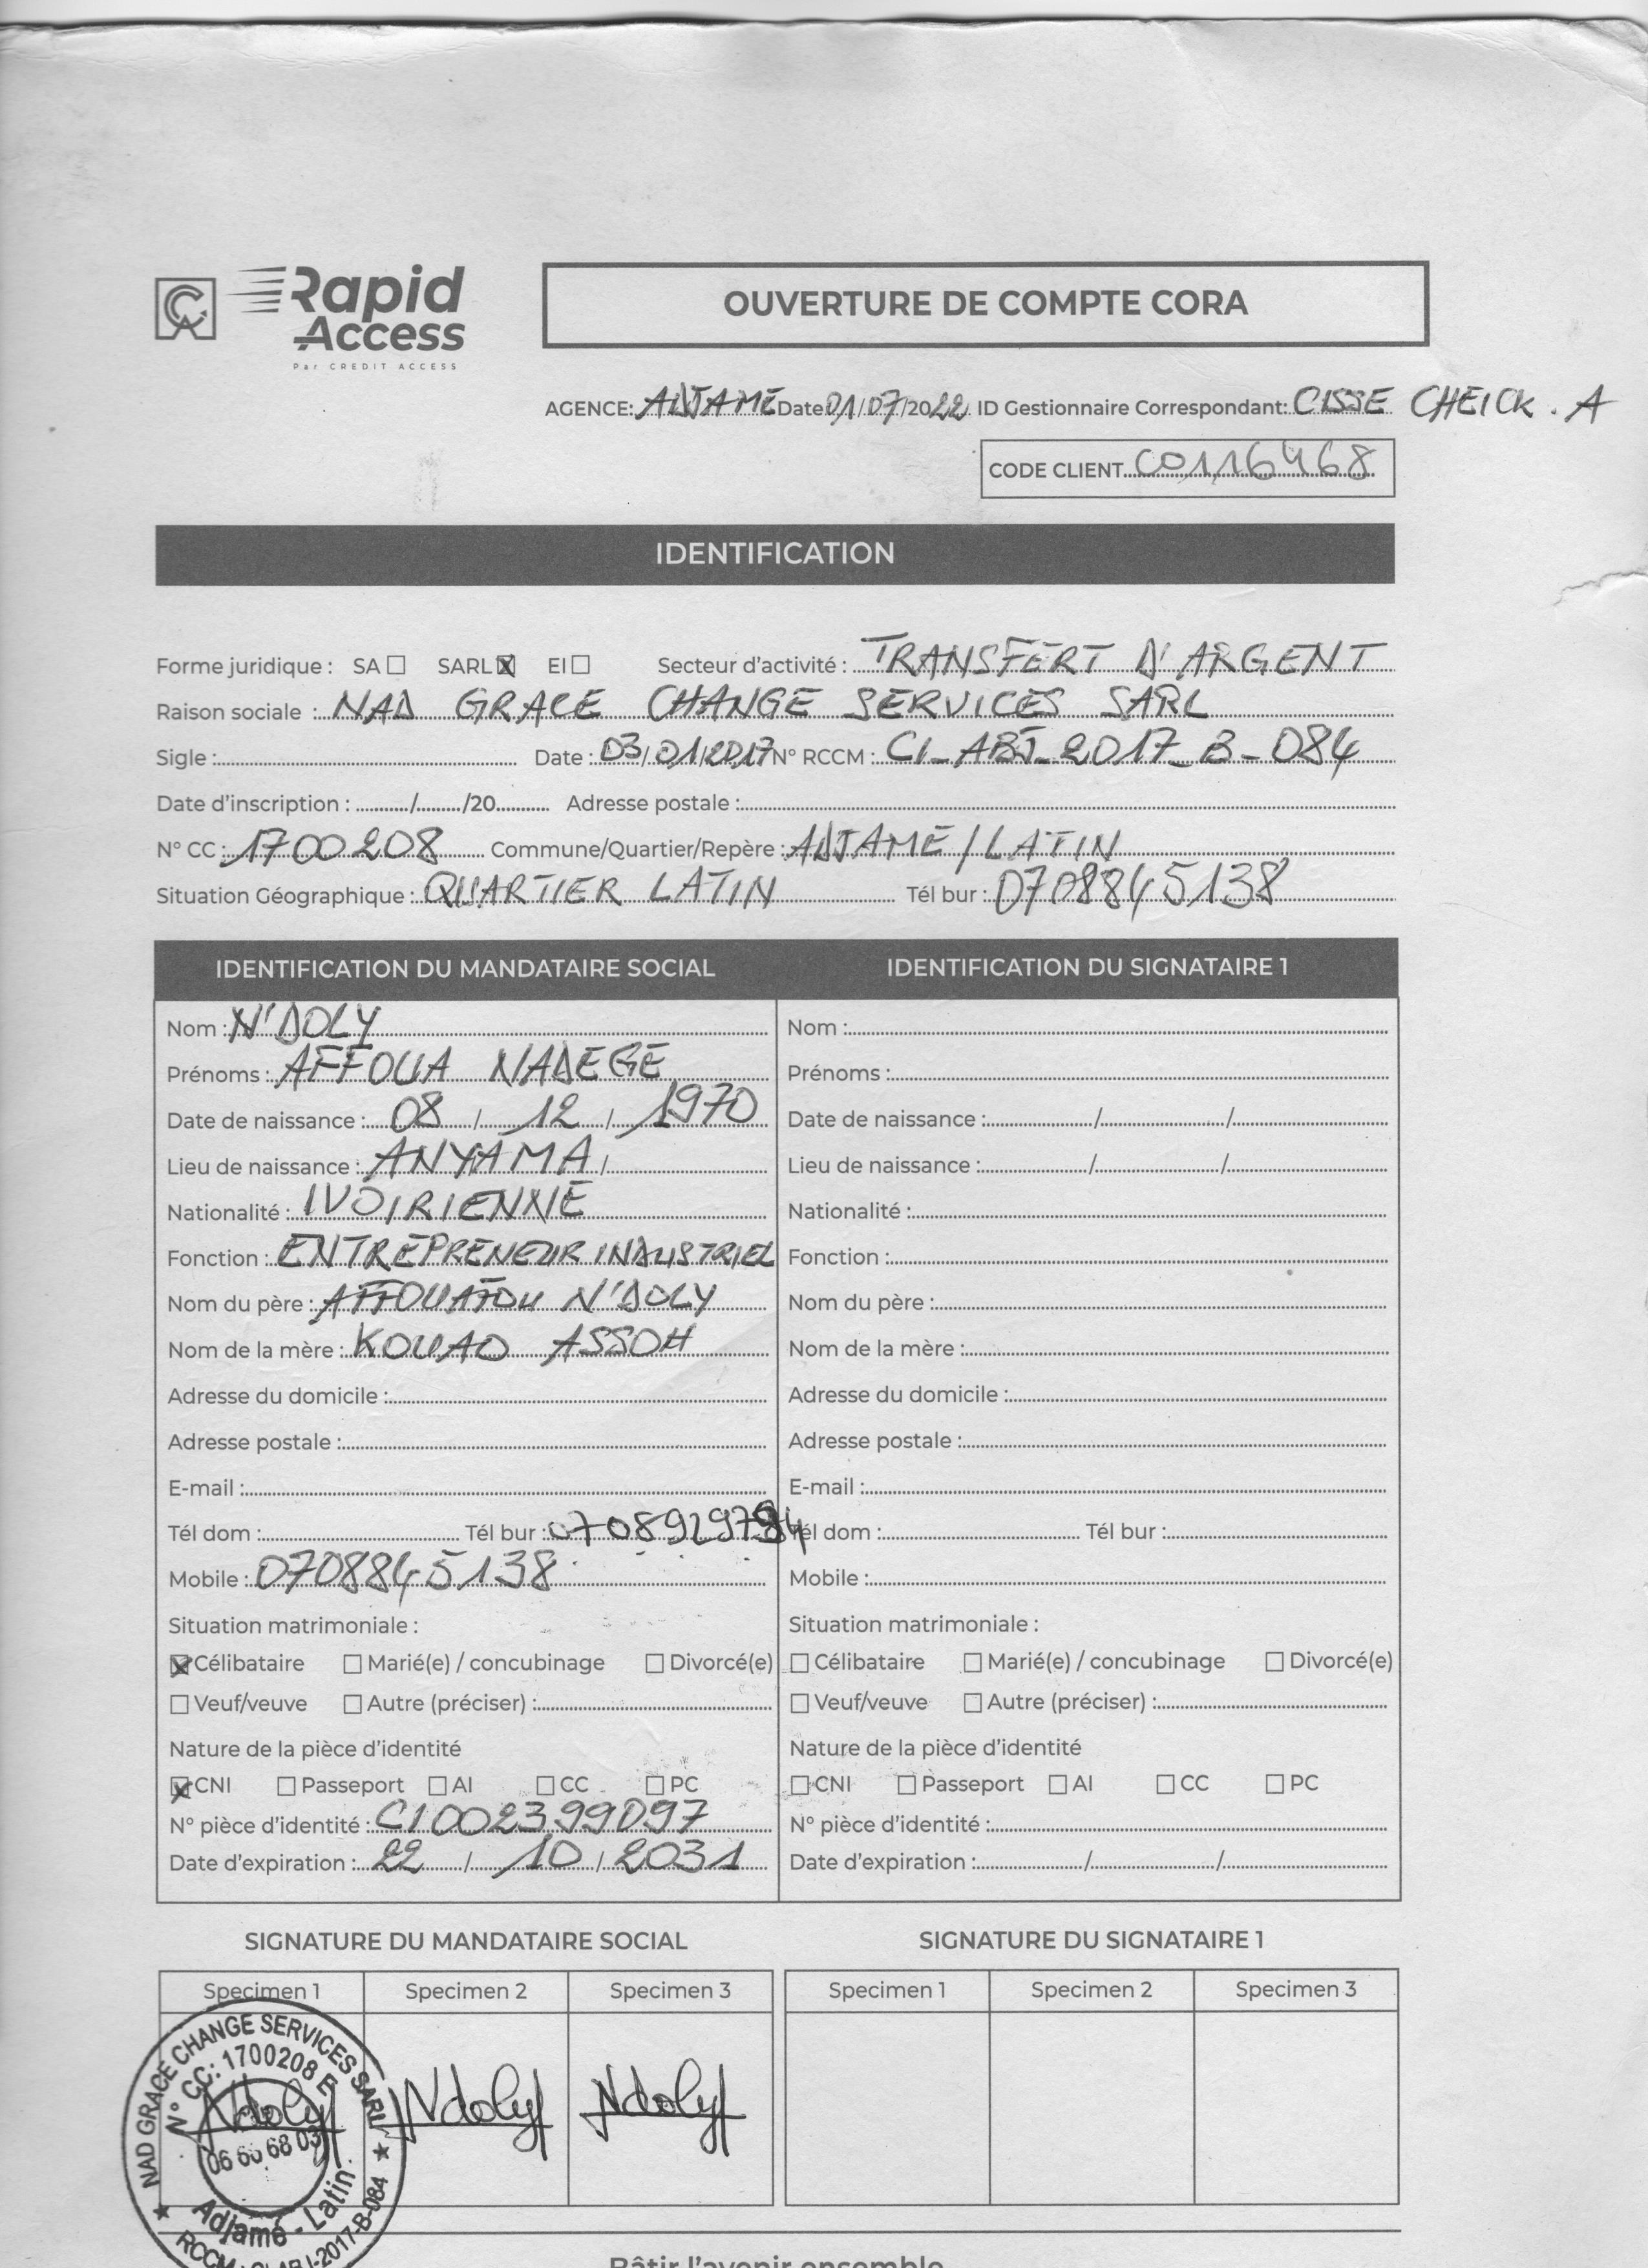 CA Rapid Access
Par CREDIT ACCESS
OUVERTURE DE COMPTE CORA
AGENCE: ADJAME Date 01/07/2022 ID Gestionnaire Correspondant: CISSE CHEICK . A
CODE CLIENT C0116468
IDENTIFICATION
Forme juridique : SA ☐ SARL ☒ EI ☐ Secteur d'activité : TRANSFERT D'ARGENT
Raison sociale : NAD GRACE CHANGE SERVICES SARL
Sigle : Date : 03/01/2017 N° RCCM : CI_ABJ_2017_B_084
Date d'inscription : ........./......../20.......... Adresse postale :
N° CC : 1700208 Commune/Quartier/Repère : ADJAME/LATIN
Situation Géographique : QUARTIER LATIN Tél bur : 0708845138
IDENTIFICATION DU MANDATAIRE SOCIAL IDENTIFICATION DU SIGNATAIRE 1
Nom : N'DOLY Nom :
Prénoms : AFFOUA NADEGE Prénoms :
Date de naissance : 08 / 12 / 1970 Date de naissance : / /
Lieu de naissance : ANYAMA / Lieu de naissance : / /
Nationalité : IVOIRIENNE Nationalité :
Fonction : ENTREPRENEUR INDUSTRIEL Fonction :
Nom du père : N'DOLY Nom du père :
Nom de la mère : KOUAO ASSOH Nom de la mère :
Adresse du domicile : Adresse du domicile :
Adresse postale : Adresse postale :
E-mail : E-mail :
Tél dom : Tél bur : Tél dom : Tél bur :
Mobile : 0708845138 Mobile :
Situation matrimoniale : Situation matrimoniale :
☒ Célibataire ☐ Marié(e) / concubinage ☐ Divorcé(e) ☐ Célibataire ☐ Marié(e) / concubinage ☐ Divorcé(e)
☐ Veuf/veuve ☐ Autre (préciser) : ☐ Veuf/veuve ☐ Autre (préciser) :
Nature de la pièce d'identité Nature de la pièce d'identité
☒ CNI ☐ Passeport ☐ AI ☐ CC ☐ PC ☐ CNI ☐ Passeport ☐ AI ☐ CC ☐ PC
N° pièce d'identité : CI002399097 N° pièce d'identité :
Date d'expiration : 22 / 10 / 2031 Date d'expiration : / /
SIGNATURE DU MANDATAIRE SOCIAL SIGNATURE DU SIGNATAIRE 1
Specimen 1 Specimen 2 Specimen 3 Specimen 1 Specimen 2 Specimen 3
NAD GRACE CHANGE SERVICES SARL
N° CC: 1700208 E
Ndoly Ndoly Ndoly
Adjamé - Latin
Bâtir l'avenir ensemble